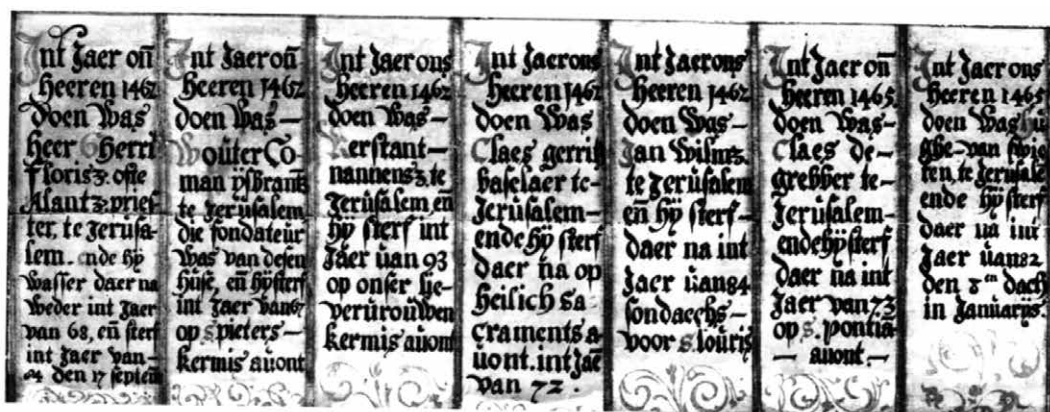 Int Jaer on̄
Heeren 1462
doen Was
Heer Gherrit
florisz. ofte
Alantz. pries-
ter, te Jerusa-
lem. ende hÿ
Wasser daer na
Weder int Jaer
van 68, en̄ sterf
int Jaer van-
84 den 17 septem̄
Int Jaer on̄
Heeren 1462
doen Was-
Woùter Co-
man ÿsbrantz
te Jerùsalem
die fondateùr
Was van desen
Hùse, en̄ hÿ sterf
int Jaer van 67
op s. pieters-
kermis aùont
Int Jaer ons
Heeren 1462
doen Was-
Kerstant-
nannensz. te
Jerùsalem, en̄
hÿ sterf int
Jaer ùan 93
op onser lie-
verùroùwen
kermis aùont
Int Jaer ons
Heeren 1462
doen Was
Claes gerritz
baselaer te-
Jerùsalem-
ende hÿ sterf
daer na op
Heilich sa
craments a
ùont. int Jae
van 72.
Int Jaer ons
Heeren 1462
doen Was-
Jan Wilmz.
te Jerùsalem
en̄ hÿ sterf-
daer na int
Jaer ùan 84
sondaechs-
voor s. loùris
Int Jaer on̄
Heeren 1465
doen Was-
Claes de-
grebber te-
Jerùsalem-
ende hÿ sterf
daer na int
Jaer van 73
op s. pontia-
- aùont -
Int Jaer ons
Heeren 1465
doen Was hù
ghe-van
ten, te Jerusale
ende hÿ sterf
daer na int
Jaer ùan 82
den 8en dach
in Januarÿs.